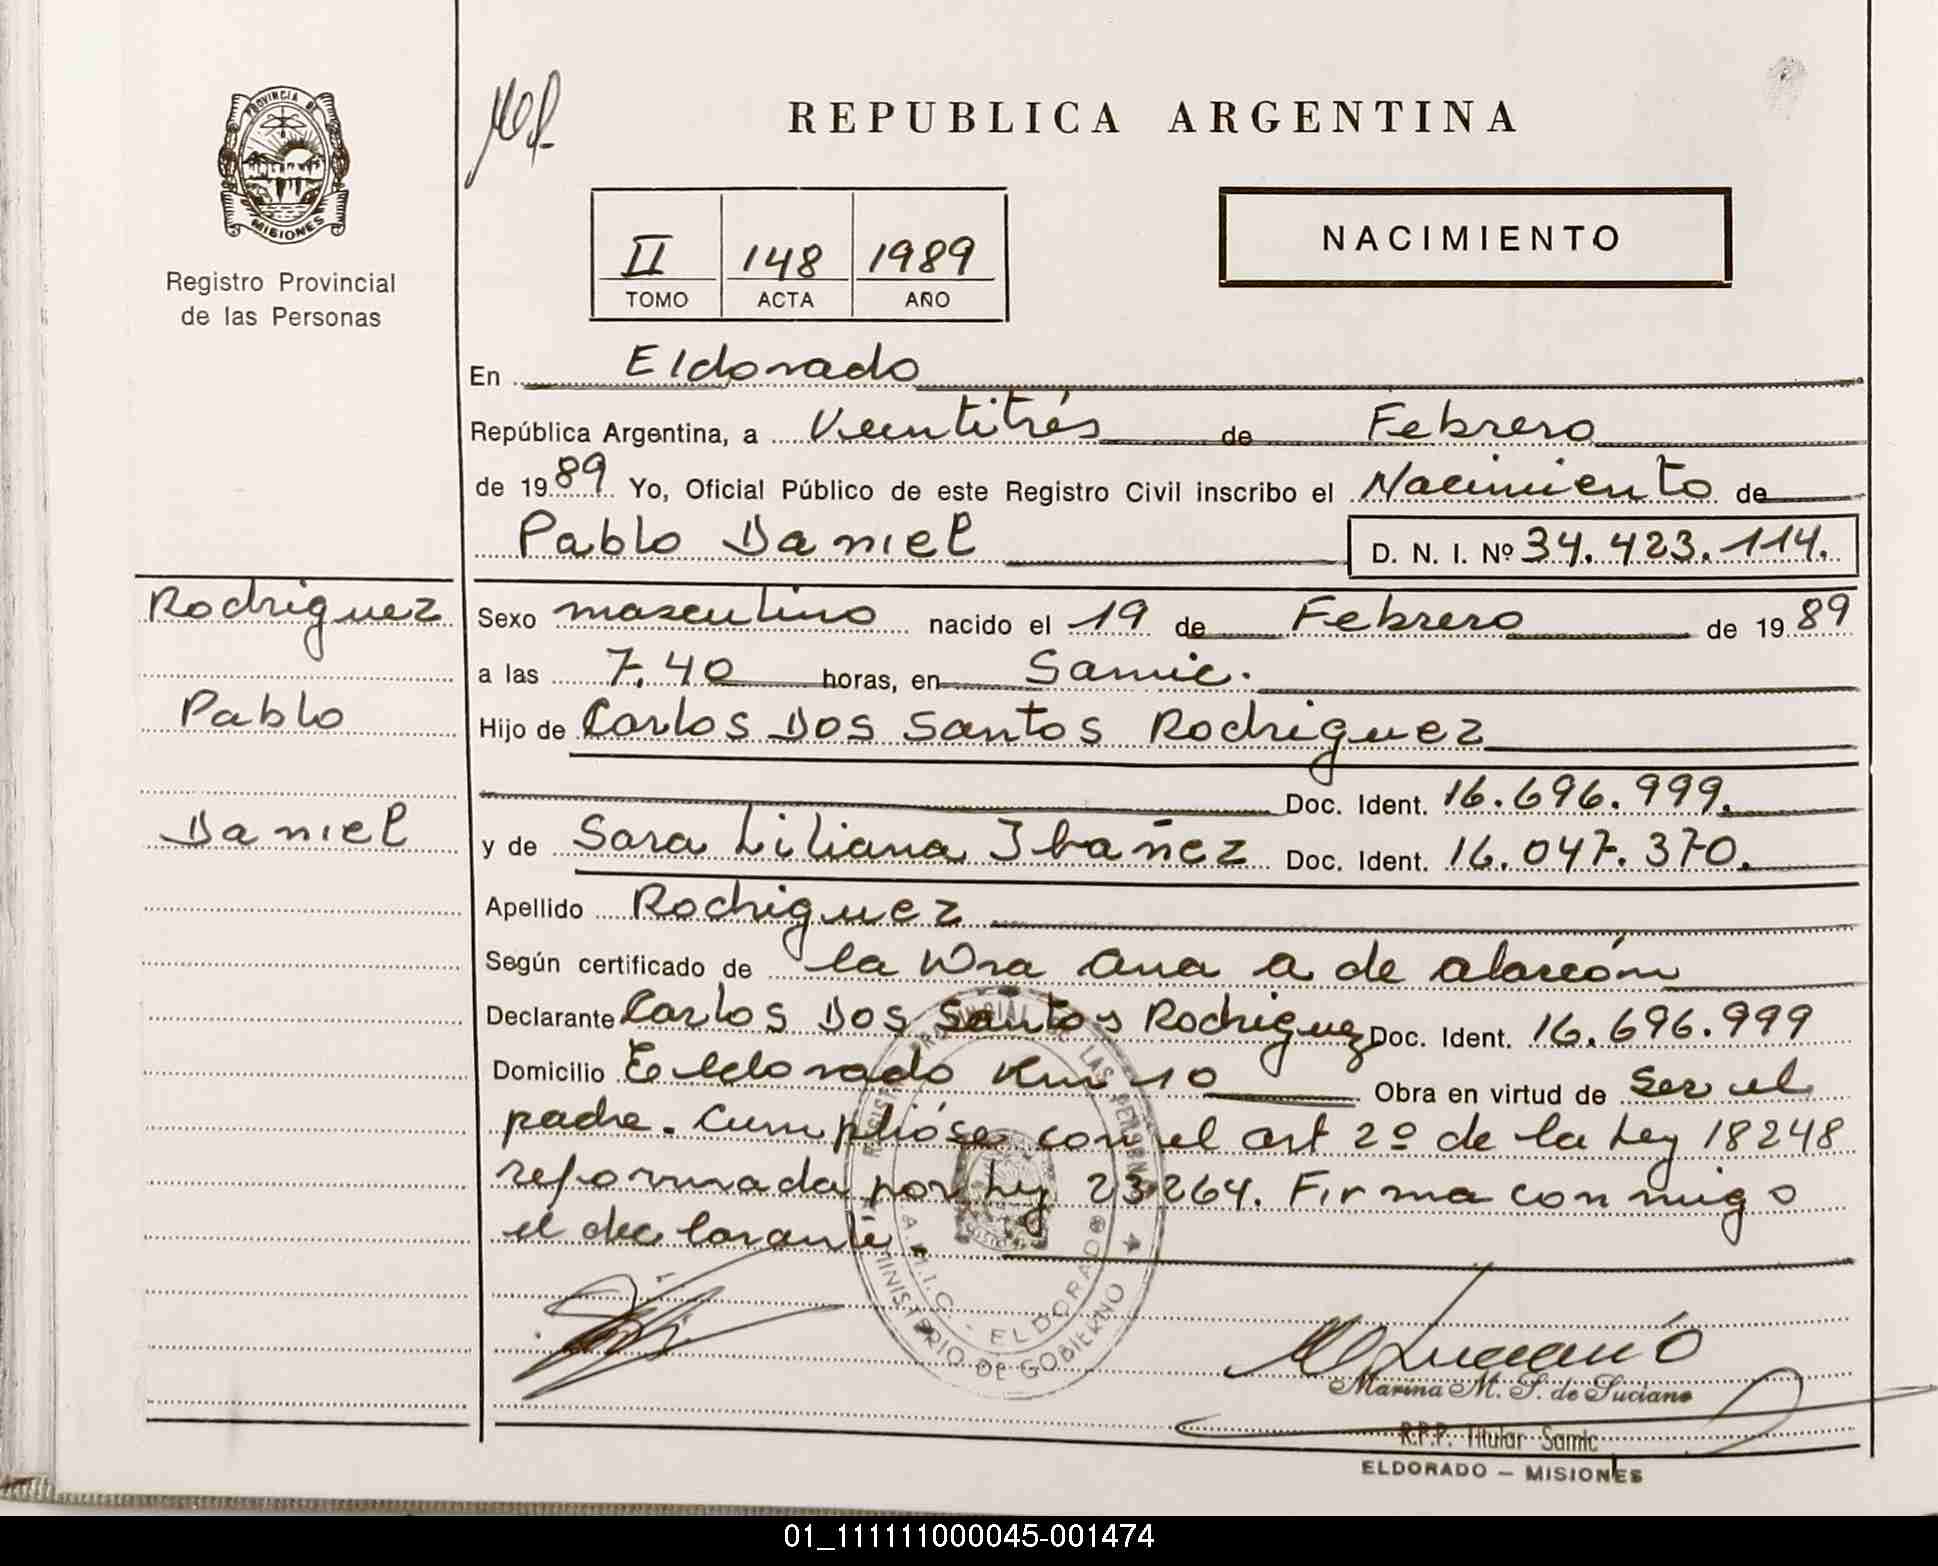 PROVINCIA DE
MISIONES
Registro Provincial
de las Personas
REPUBLICA ARGENTINA
NACIMIENTO
II 148 1989
TOMO ACTA AÑO
En Eldorado
República Argentina, a Veintitrés de Febrero
de 1989 Yo, Oficial Público de este Registro Civil inscribo el Nacimiento de
Pablo Daniel D. N. I. Nº 34.423.114.
Rodriguez
Pablo
Daniel
Sexo masculino nacido el 19 de Febrero de 1989
a las 7.40 horas, en Samic.
Hijo de Carlos Dos Santos Rodriguez
Doc. Ident. 16.696.999.
y de Sara Liliana Ibañez Doc. Ident. 16.047.370.
Apellido Rodriguez
Según certificado de la Dra Ana A de Alarcón
Declarante Carlos Dos Santos Rodriguez Doc. Ident. 16.696.999
Domicilio Eldorado Km 10 Obra en virtud de ser el
padre. Cumplióse con el art 2º de la Ley 18248
reformada por Ley 23264. Firma conmigo
el declarante
REGISTRO PROVINCIAL DE LAS PERSONAS
S.A.M.I.C. - ELDORADO
MINISTERIO DE GOBIERNO
Marina M. S. de Luciano
R.P.P. Titular Samic
ELDORADO – MISIONES
01_111111000045-001474